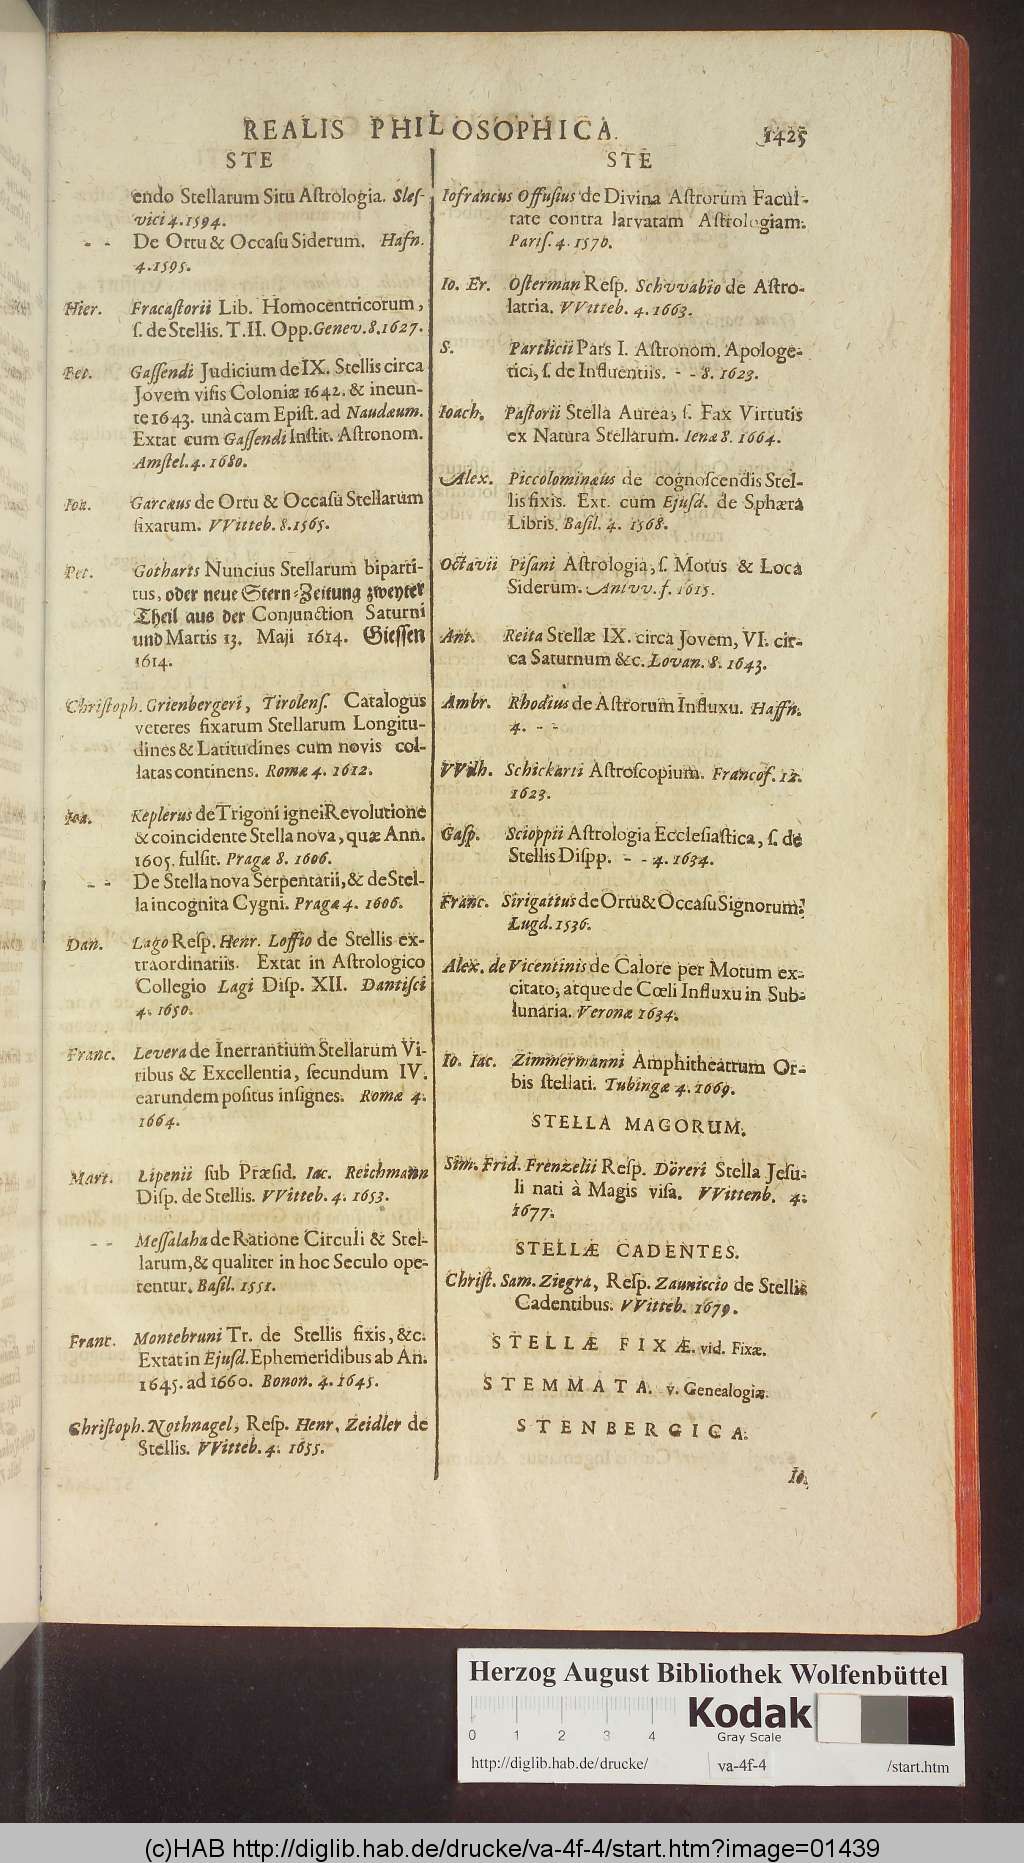 REALIS PHILOSOPHICA. 1425
STE
endo Stellarum Situ Aſtrologia. Sleſ-
vici 4. 1594.
- - De Ortu & Occaſu Siderum. Hafn.
4. 1595.
Hier. Fracaſtorii Lib. Homocentricorum,
ſ. de Stellis. T. II. Opp. Genev. 8. 1627.
Pet. Gaſſendi Judicium de IX. Stellis circa
Jovem viſis Coloniæ 1642. & ineun-
te 1643. unà cum Epiſt. ad Naudæum.
Extat cum Gaſſendi Inſtit. Aſtronom.
Amſtel. 4. 1680.
Joh. Garcæus de Ortu & Occaſu Stellarum
fixarum. VVitteb. 8. 1565.
Pet. Gotharts Nuncius Stellarum biparti-
tus, oder neue Stern-Zeitung zweyter
Theil aus der Conjunction Saturni
und Martis 13. Maji 1614. Gieſſen
1614.
Chriſtoph. Grienbergeri, Tirolenſ. Catalogus
veteres fixarum Stellarum Longitu-
dines & Latitudines cum novis col-
latas continens. Romæ 4. 1612.
Joa. Keplerus de Trigoni ignei Revolutione
& coincidente Stella nova, quæ Ann.
1605. fulſit. Pragæ 8. 1606.
- - De Stella nova Serpentarii, & de Stel-
la incognita Cygni. Pragæ 4. 1606.
Dan. Lago Reſp. Henr. Loffio de Stellis ex-
traordinariis. Extat in Aſtrologico
Collegio Lagi Diſp. XII. Dantiſci
4. 1650.
Franc. Levera de Inerrantium Stellarum Vi-
ribus & Excellentia, ſecundum IV.
earundem poſitus inſignes. Romæ 4.
1664.
Mart. Lipenii ſub Præſid. Iac. Reichmann
Diſp. de Stellis. VVitteb. 4. 1653.
- - Meſſalaha de Ratione Circuli & Stel-
larum, & qualiter in hoc Seculo ope-
rentur. Baſil. 1551.
Franc. Montebruni Tr. de Stellis fixis, &c.
Extat in Ejuſd. Ephemeridibus ab An.
1645. ad 1660. Bonon. 4. 1645.
Chriſtoph. Nothnagel, Reſp. Henr. Zeidler de
Stellis. VVitteb. 4. 1655.
STE
Iofrancus Offuſius de Divina Aſtrorum Facul-
tate contra larvatam Aſtrologiam.
Pariſ. 4. 1570.
Io. Er. Oſterman Reſp. Schvvabio de Aſtro-
latria. VVitteb. 4. 1663.
S. Partlicii Pars I. Aſtronom. Apologe-
tici, ſ. de Influentiis. - - 8. 1623.
Ioach. Paſtorii Stella Aurea, ſ. Fax Virtutis
ex Natura Stellarum. Ienæ 8. 1664.
Alex. Piccolominæus de cognoſcendis Stel-
lis fixis. Ext. cum Ejuſd. de Sphæra
Libris. Baſil. 4. 1568.
Octavii Piſani Aſtrologia, ſ. Motus & Loca
Siderum. Antvv. f. 1615.
Ant. Reita Stellæ IX. circa Jovem, VI. cir-
ca Saturnum &c. Lovan. 8. 1643.
Ambr. Rhodius de Aſtrorum Influxu. Haffn.
4. - -
VVilh. Schickarti Aſtroſcopium. Francof. 12.
1623.
Gaſp. Scioppii Aſtrologia Eccleſiaſtica, ſ. de
Stellis Diſpp. - - 4. 1634.
Franc. Sirigattus de Ortu & Occaſu Signorum.
Lugd. 1536.
Alex. de Vicentinis de Calore per Motum ex-
citato, atque de Cœli Influxu in Sub-
lunaria. Veronæ 1634.
Io. Iac. Zimmermanni Amphitheatrum Or-
bis ſtellati. Tubingæ 4. 1669.
STELLA MAGORUM.
Sim. Frid. Frenzelii Reſp. Döreri Stella Jeſu-
li nati à Magis viſa. VVittenb. 4.
1677.
STELLÆ CADENTES.
Chriſt. Sam. Ziegra, Reſp. Zauniccio de Stellis
Cadentibus. VVitteb. 1679.
STELLÆ FIXÆ. vid. Fixæ.
STEMMATA. v. Genealogiæ.
STENBERGICA.
Io.
Herzog August Bibliothek Wolfenbüttel
Kodak
Gray Scale
0 1 2 3 4
http://diglib.hab.de/drucke/ va-4f-4 /start.htm
(c)HAB http://diglib.hab.de/drucke/va-4f-4/start.htm?image=01439